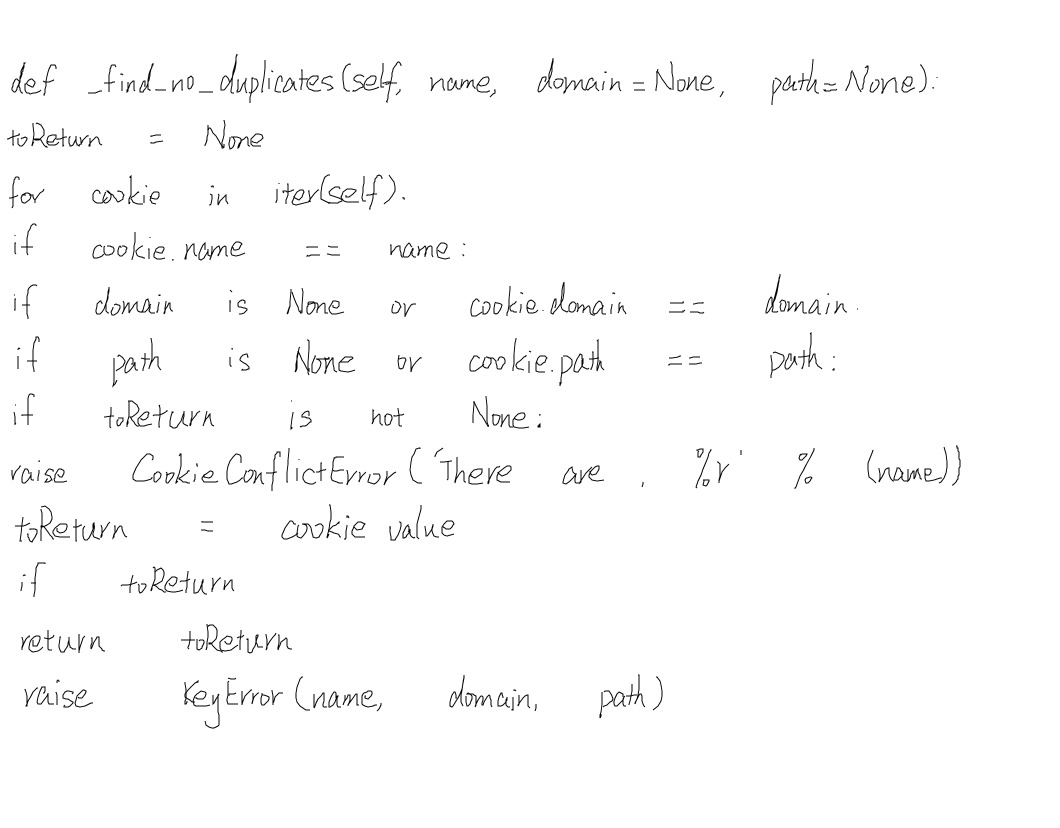 def _find_no_duplicates(self, name, domain=None, path=None):
toReturn = None
for cookie in iter(self).
if cookie.name == name:
if domain is None or cookie.domain == domain.
if path is None or cookie.path == path:
if toReturn is not None:
raise CookieConflictError('There are , %r' % (name))
toReturn = cookie value
if toReturn
return toReturn
raise KeyError(name, domain, path)